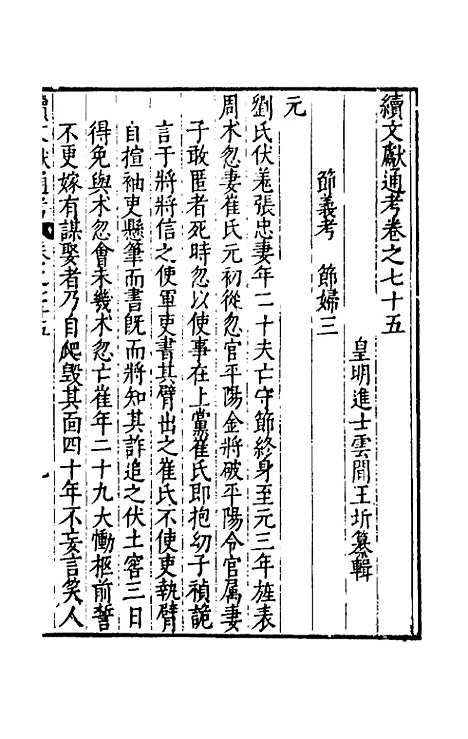 續文獻通考卷之七十五
皇明進士雲間王圻纂輯
節義考　節婦三
元
劉氏伏羗張忠妻年二十夫亡守節終身至元三年旌表
周术忽妻崔氏元初從忽官平陽金將破平陽令官属妻
子敢匿者死時忽以使事在上黨崔氏即抱幼子禎詭
言于將將信之使軍吏書其臂出之崔氏不使吏執臂
自揎袖吏懸筆而書既而將知其詐追之伏土窖三日
得免與术忽會未幾术忽亡崔年二十九大慟柩前誓
不更嫁有謀娶者乃自爬毀其面四十年不妄言笑人